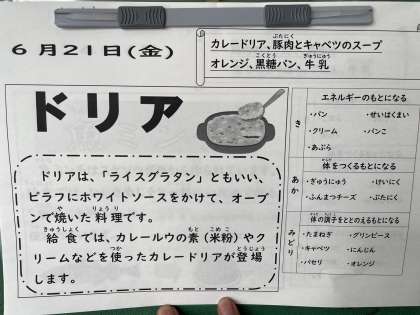 6月21日(金)
カレードリア、豚肉とキャベツのスープ
オレンジ、黒糖パン、牛乳
ドリア
ドリアは、「ライスグラタン」ともいい、
ピラフにホワイトソースをかけて、オーブ
ンで焼いた料理です。
給食では、カレールウの素(米粉)やク
リームなどを使ったカレードリアが登場
します。
エネルギーのもとになる
き
・パン ・せいはくまい
・クリーム ・パンこ
・あぶら
体をつくるもとになる
あか
・ぎゅうにゅう ・けいにく
・ふんまつチーズ ・ぶたにく
体の調子をととのえるもとになる
みどり
・たまねぎ ・グリンピース
・キャベツ ・にんじん
・パセリ ・オレンジ